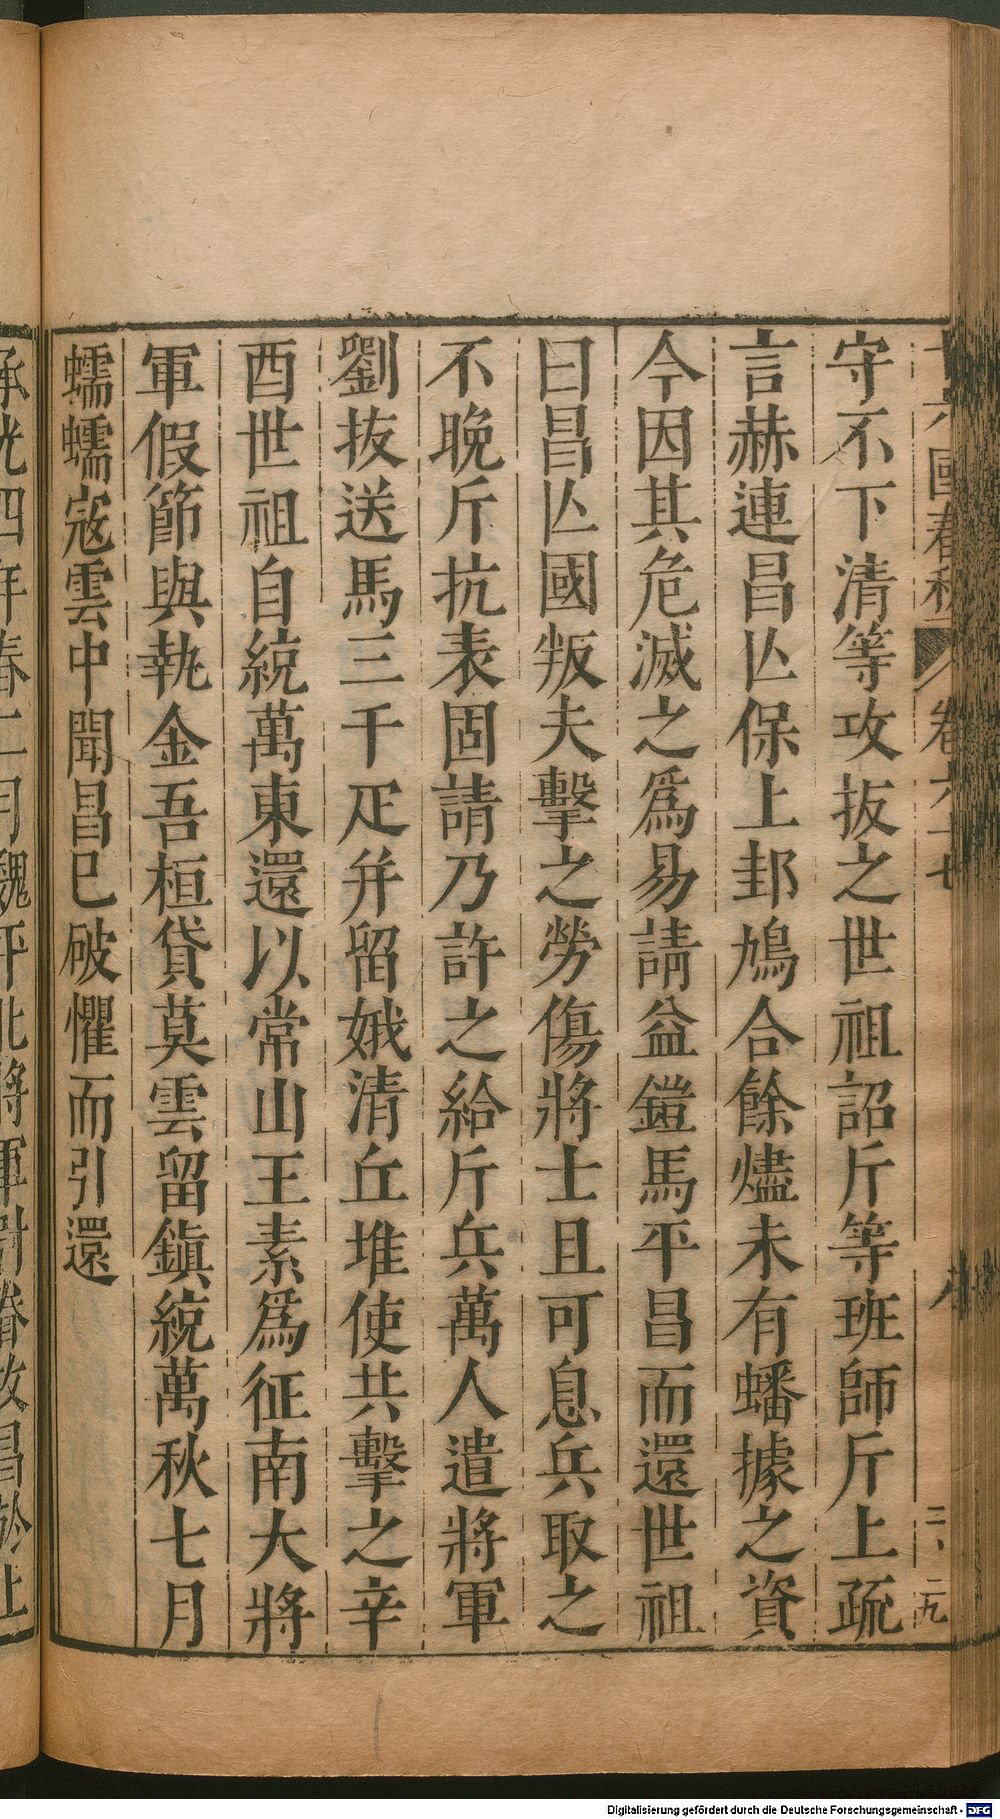 守不下清等攻拔之世祖詔斤等班師斤上疏
言赫連昌亾保上邽鳩合餘燼未有蟠據之資
今因其危滅之爲易請益鎧馬平昌而還世祖
曰昌亾國叛夫擊之勞傷將士且可息兵取之
不晚斤抗表固請乃許之給斤兵萬人遣將軍
劉拔送馬三千疋并留娥清丘堆使共擊之辛
酉世祖自統萬東還以常山王素爲征南大將
軍假節與執金吾桓貸莫雲留鎮統萬秋七月
蠕蠕寇雲中聞昌已破懼而引還
承光四年春二月魏平北將軍尉眷攻昌於上
Digitalisierung gefördert durch die Deutsche Forschungsgemeinschaft - DFG